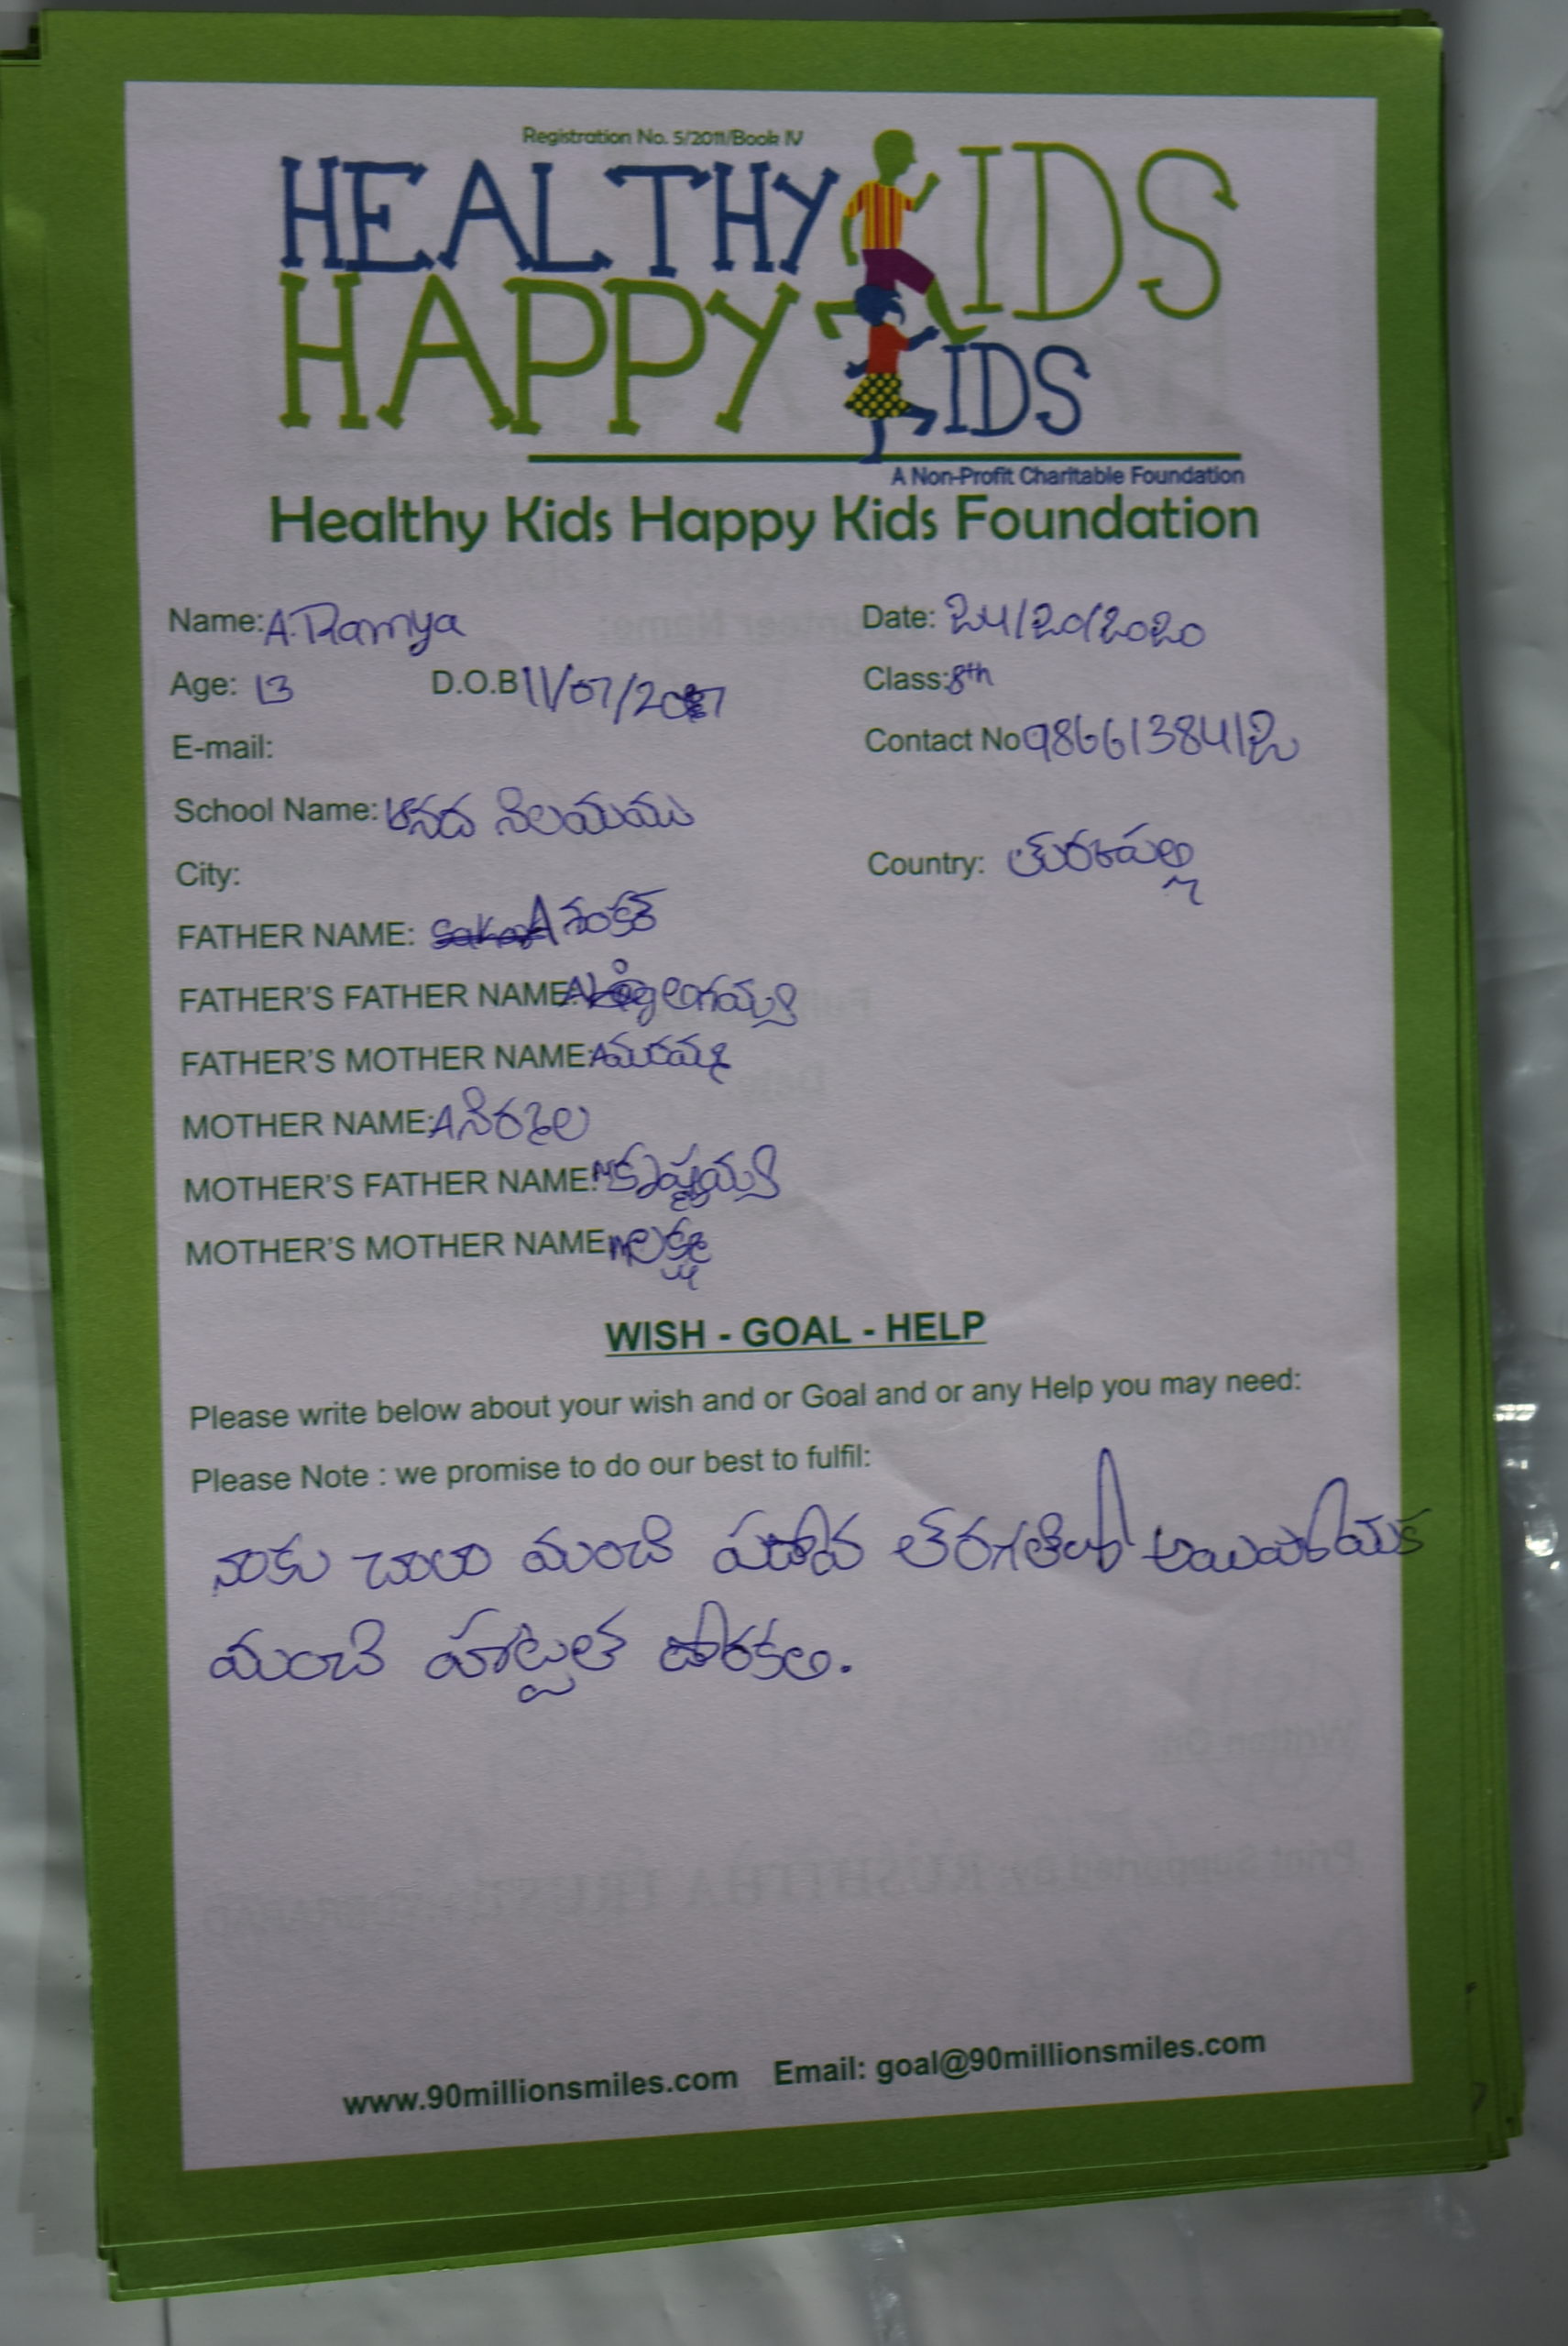 Registration No. 5/2011/Book IV
HEALTHY KIDS
HAPPY KIDS
A Non-Profit Charitable Foundation
Healthy Kids Happy Kids Foundation
Name: A. Ramya Date: 24/20/2020
Age: 13 D.O.B 11/07/2007 Class: 8th
E-mail: Contact No 9866138412
School Name: ఆనద నిలమము
City: Country:
FATHER NAME: A శంకర్
FATHER'S FATHER NAME: లింగయ్య
FATHER'S MOTHER NAME: A మరమ్మ
MOTHER NAME: A నిర్మల
MOTHER'S FATHER NAME: M కృష్ణయ్య
MOTHER'S MOTHER NAME: M లక్ష్మి
WISH - GOAL - HELP
Please write below about your wish and or Goal and or any Help you may need:
Please Note : we promise to do our best to fulfil:
నాకు చాలా మంచి పదోవ తరగతిలో అయిపోయక
మంచి హాట్టల్ దొరకలి.
www.90millionsmiles.com Email: goal@90millionsmiles.com